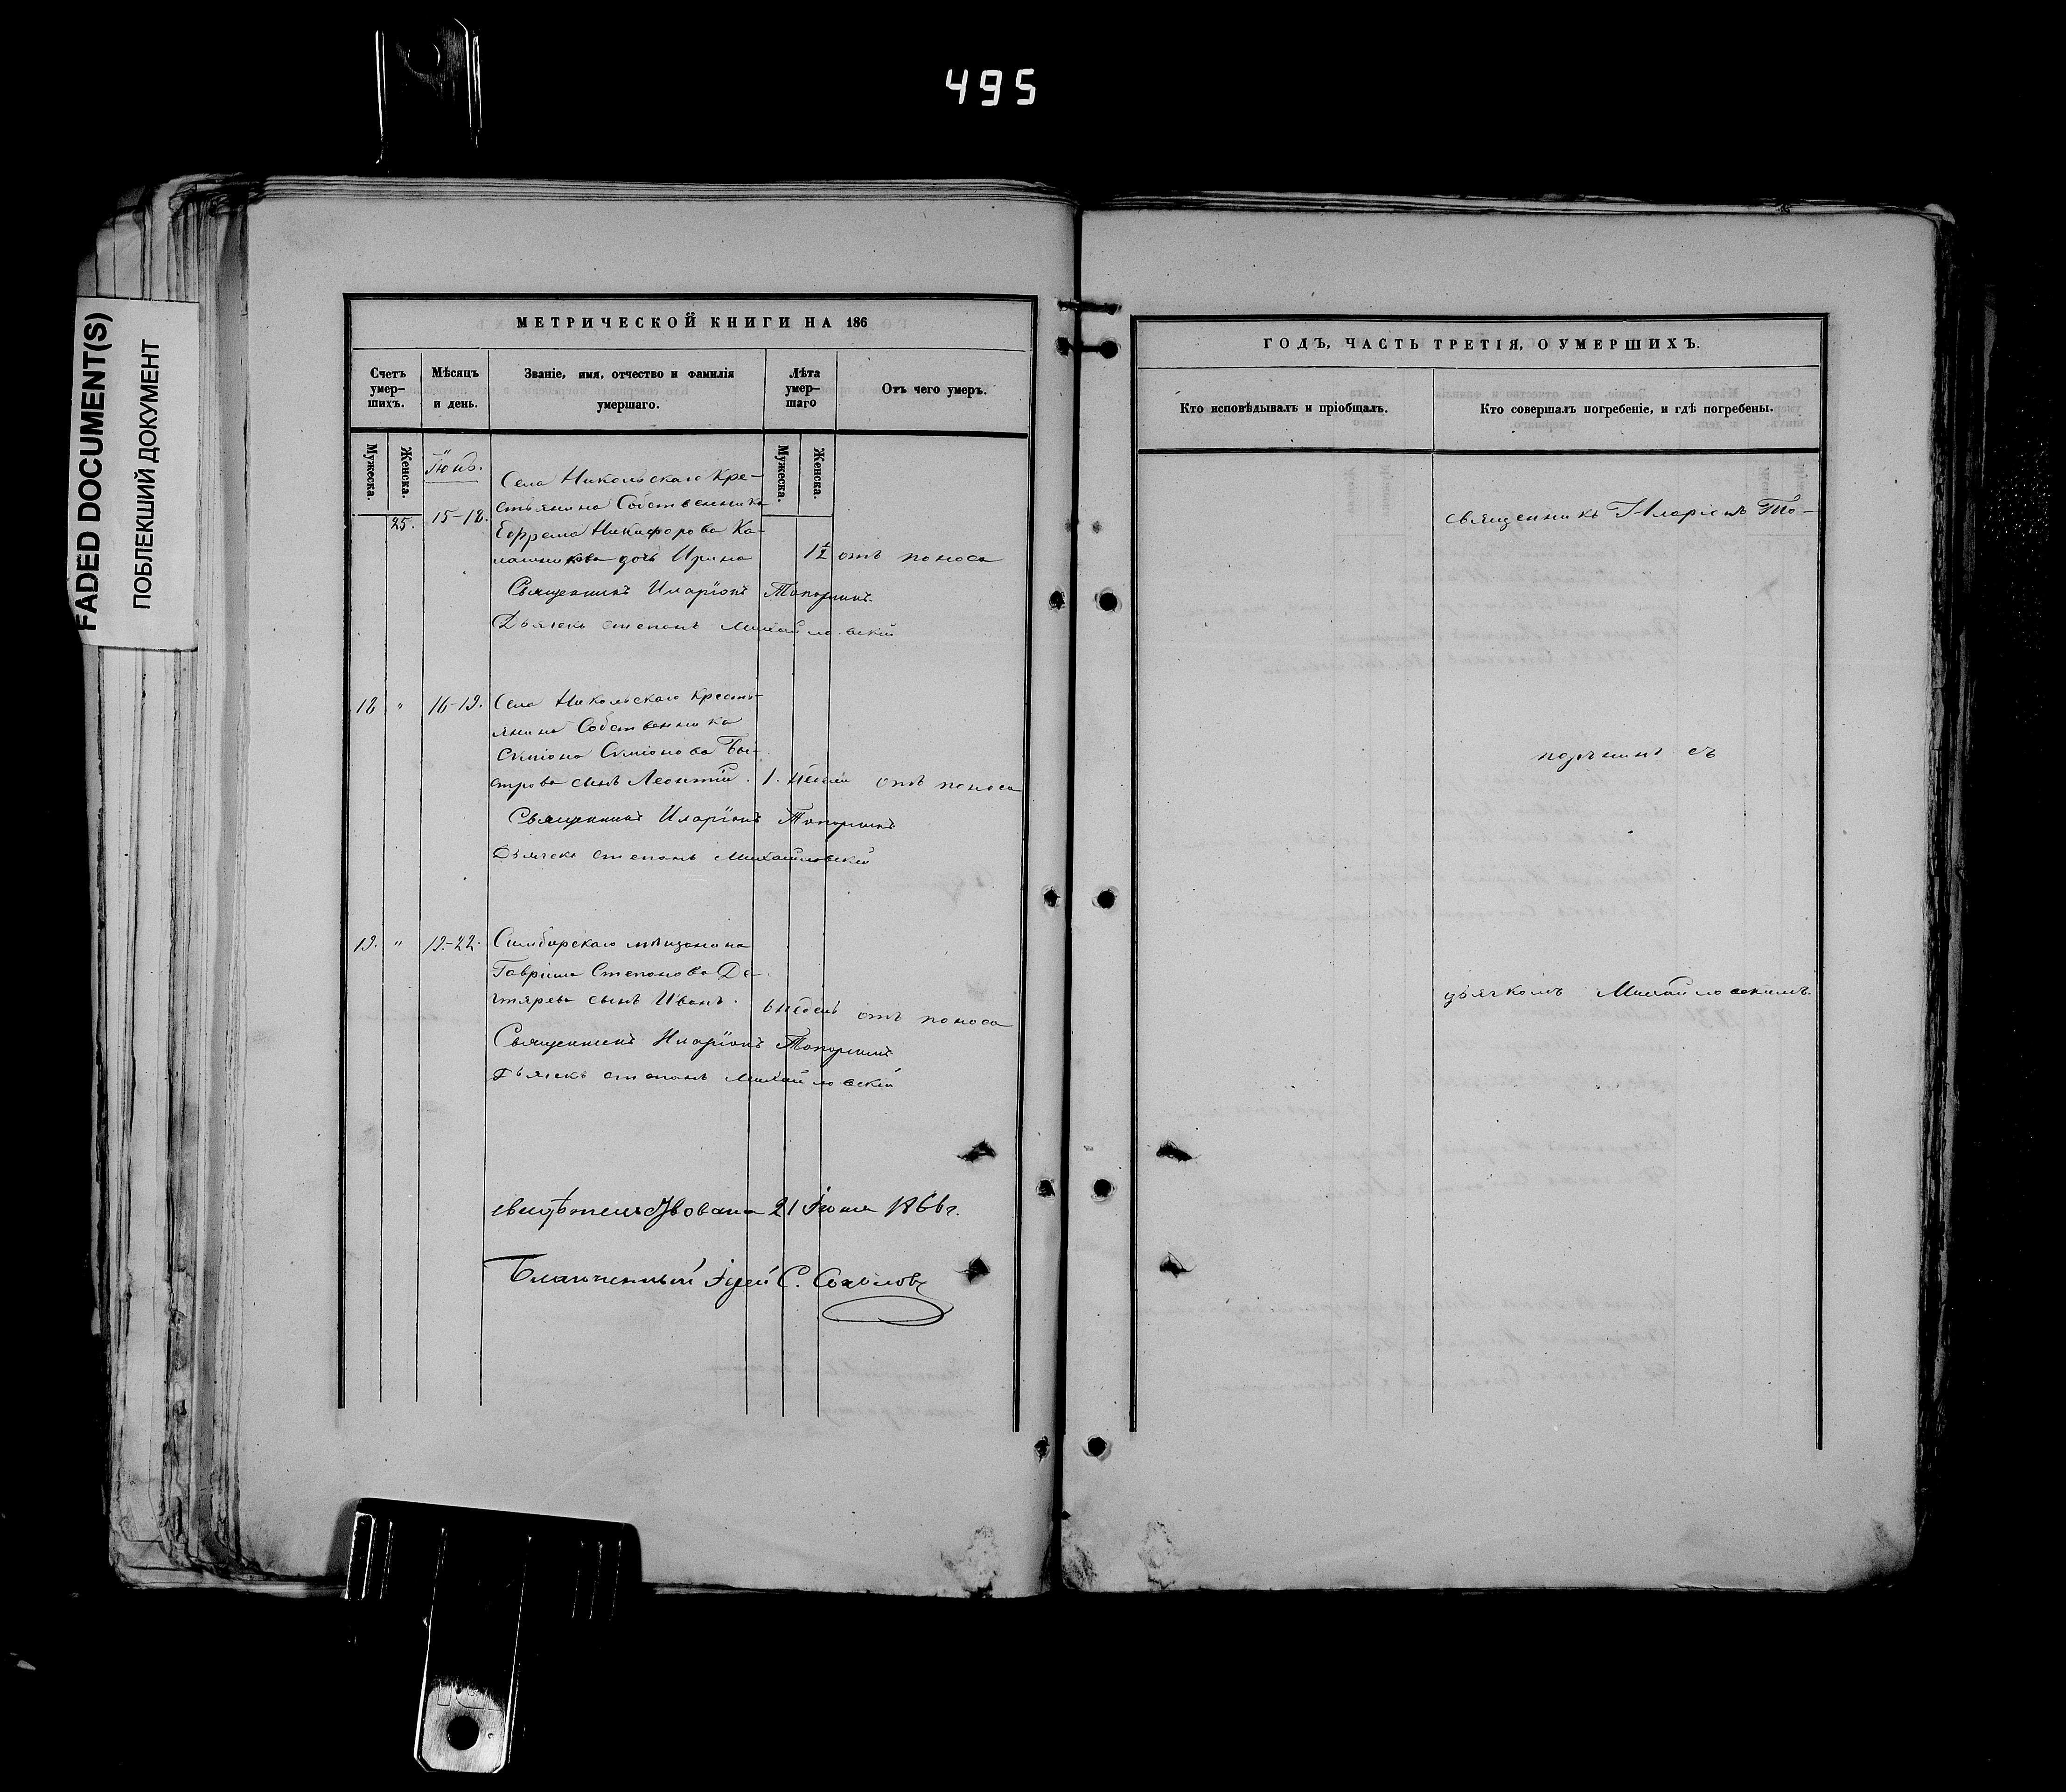 495
FADED DOCUMENT(S)
ПОБЛЕКШИЙ ДОКУМЕНТ
МЕТРИЧЕСКОЙ КНИГИ НА 186
Счетъ умер-шихъ.
Мѣсяцъ и день.
Званіе, имя, отчество и фамилія умершаго.
Лѣта умер-шаго
Отъ чего умеръ.
Мужеска.
Женска.
Мужеска.
Женска.
Іюнь.
25.
15-18.
Села Никольскаго Кре-
стьянина Собственника
Ефрема Никифорова Ка-
лашникова дочь Ирина
1½ отъ поноса
Священникъ Иларіонъ Топорнинъ.
Дьячекъ Степанъ Михайловскій
18 " 16-19.
Села Никольскаго Кресть-
янина Собственника
Симіона Симіонова Бы-
строва сынъ Леонтій. 1. недели отъ поноса
Священникъ Иларіонъ Топорнинъ
Дьячекъ Степанъ Михайловскій
19. " 19-22.
Симбирскаго мѣщанина
Гавріила Степанова Де-
гтярева сынъ Иванъ. 6 недель отъ поноса
Священникъ Иларіонъ Топорнинъ
Дьячекъ Степанъ Михайловскій
свидѣтельствована 21 Іюня 1866 г.
Благочинный Іерей С. Соколовъ
ГОДЪ, ЧАСТЬ ТРЕТІЯ, О УМЕРШИХЪ.
Кто исповѣдывалъ и пріобщалъ.
Кто совершалъ погребеніе, и гдѣ погребены.
священникъ Иларіонъ То-
порнинъ съ
дьячкомъ Михайловскимъ.